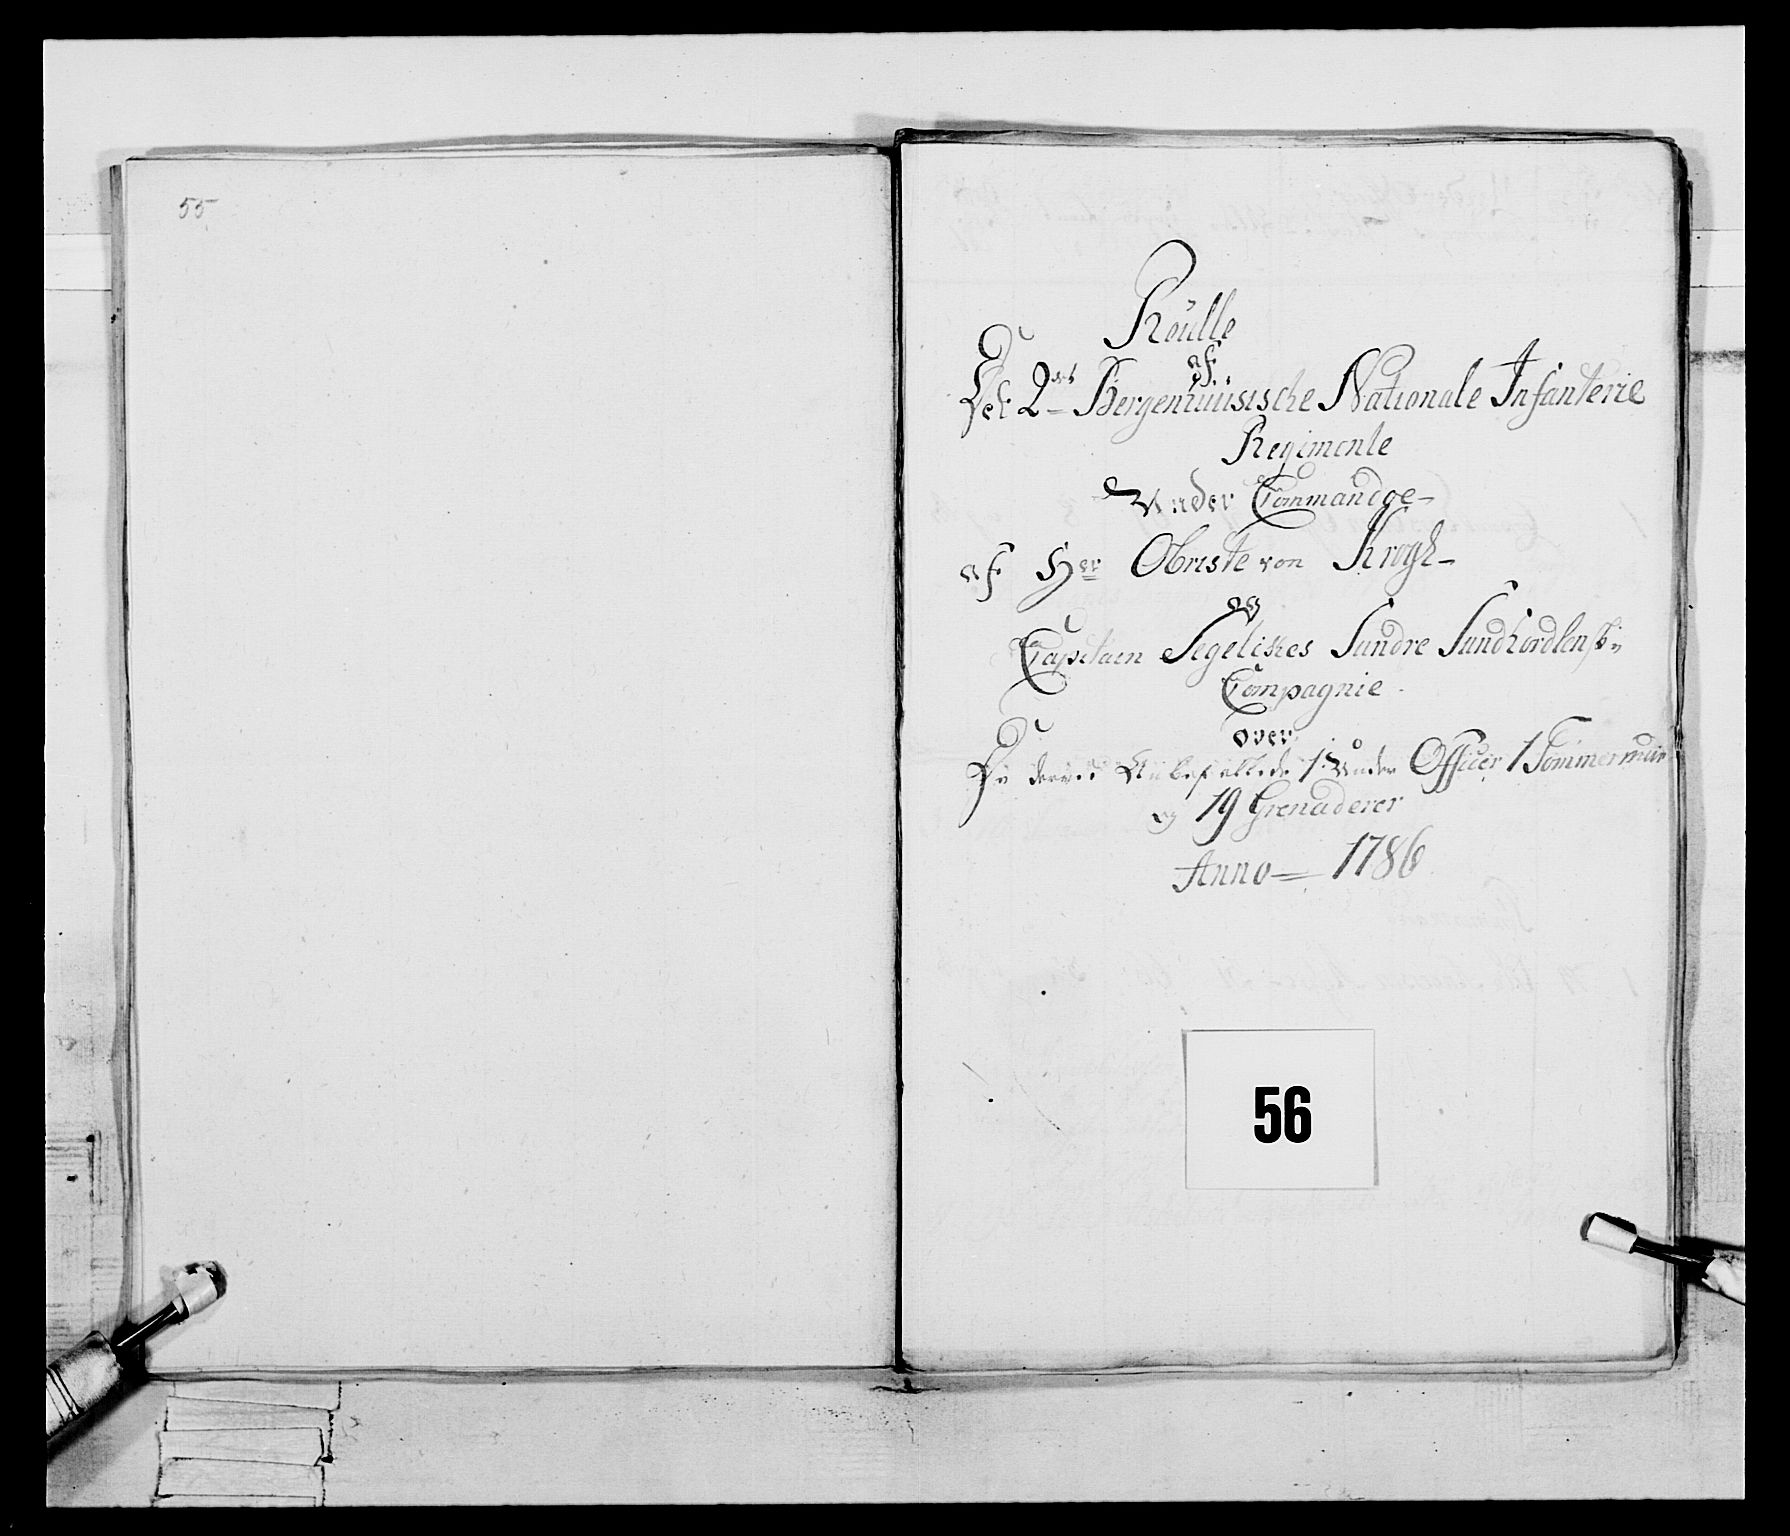 55
Roulle
af
Det 2det Bergenhuusische Nationale Infanterie
Regimente
Under Commandoe
af Herr Obriste von Krogh
og
Capitain Segelckes Søndre Sundhordlenske
Compagnie
over
De derved 1 Under Officer 1 Tømmermand
og 19 Grenaderer
Anno 1786
56